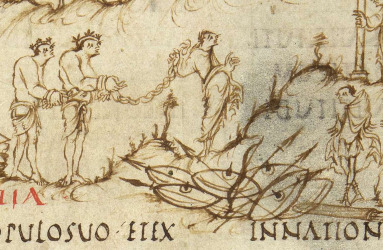 UIA
PULOSUO ETEX INNATION